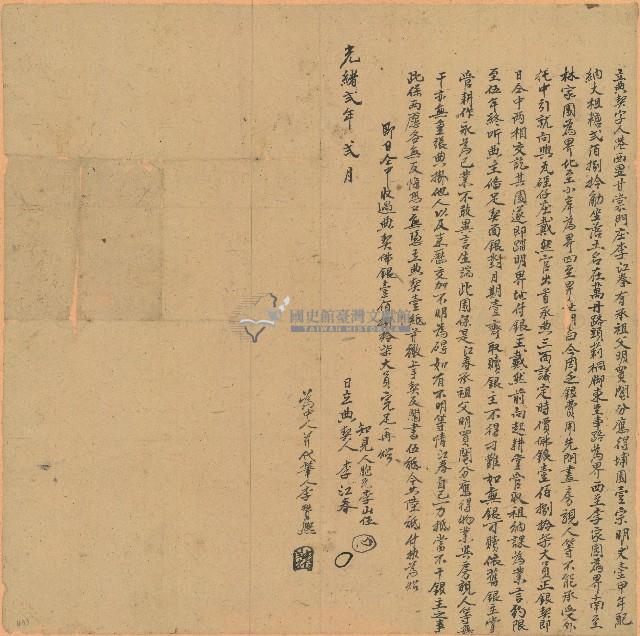 立典契字人港西里廿宗門庄李江春有承祖父明買鬮分應得埔園壹宗明丈壹甲年配
納大租糖弍佰捌拾觔坐落土名在萬丹路頭莿桐脚東至車路為界西至李家園為界南至
林家園為界北至小岸為界四至界址明白今因乏銀費用先問盡房親人等不能承受外
托中引就向興瓦磘仔庄戴然官出首承典三面議定時價佛銀壹佰捌拾柒大員正銀契即
日仝中两相交訖其園遂即踏明界址付銀主戴然前去起耕掌管收租納課為業言約限
至伍年終听典主俻足契面銀對月期壹齊取贖銀主不得刁難如無銀可贖依舊銀主掌
管耕作永為己業不敢異言生端此園保是江春承祖父明買鬮分應得物業與房親人等無
干亦無重張典掛他人以及来歷交加不明為碍如有不明等情江春自己一力抵當不干銀主之事
此係两愿各無反悔恐口無憑立典契壹紙并繳上手契反鬮書伍紙合共陸紙付執為炤
即日仝中收過典契佛銀壹佰捌拾柒大員完足再炤
光緒弍年弍月
知見人胞兄李山住
日立典契人李江春
為中人并代筆人李
國史館臺灣文獻館
TAIWAN HISTORICA